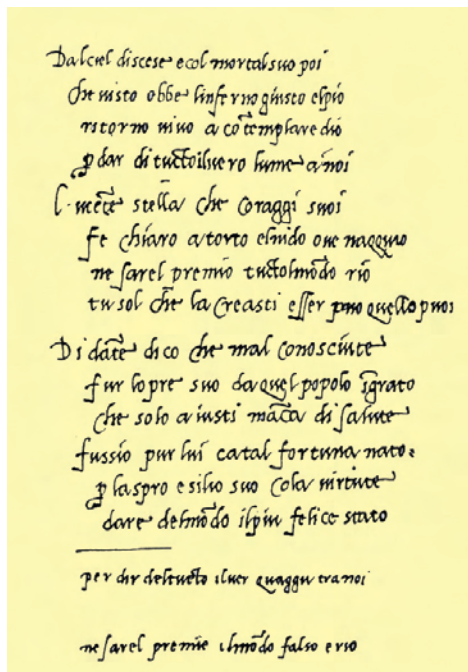 Dalciel discese e col mortal suo poi
che uisto ebbe linferno giusto elpio
ritorno uiuo a cōtemplare dio
ꝑ dar di tuctoiluero lume anoi
Lucēte stella che coraggi suoi
fe chiaro atorto elnido oue nacquio
ne sarel premio tuctolmōdo rio
tusol che la creasti esser puo quello puoi
Di dāte dico che mal conosciute
fur lopre suo daquel popolo īgrato
che solo aiusti māca di salute
fussio pur lui catal fortuna nato
ꝑ laspro esilio suo cola uirtute
dare delmōdo ilpiu felice stato
per dir deltucto iluer quaggiu tranoi
ne sarel premio ilmōdo falso e rio